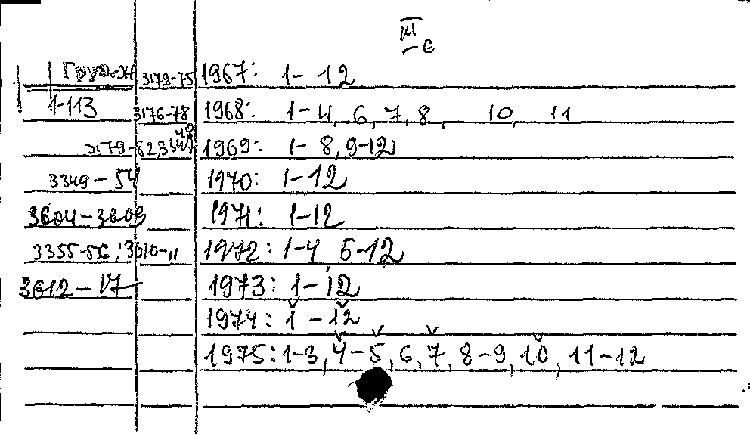 III
с
Грузин 3172-75 1967: 1-12
1-113 3176-78 1968: 1-4, 6, 7, 8, 10, 11
3179-82, 1969: 1-8, 9-12
3349-54 1970: 1-12
3604-3609 1971: 1-12
3355-56; 3610-11 1972: 1-4 5-12
3612-17 1973: 1-12
1974: 1-12
1975: 1-3, 4-5, 6, 7, 8-9, 10, 11-12